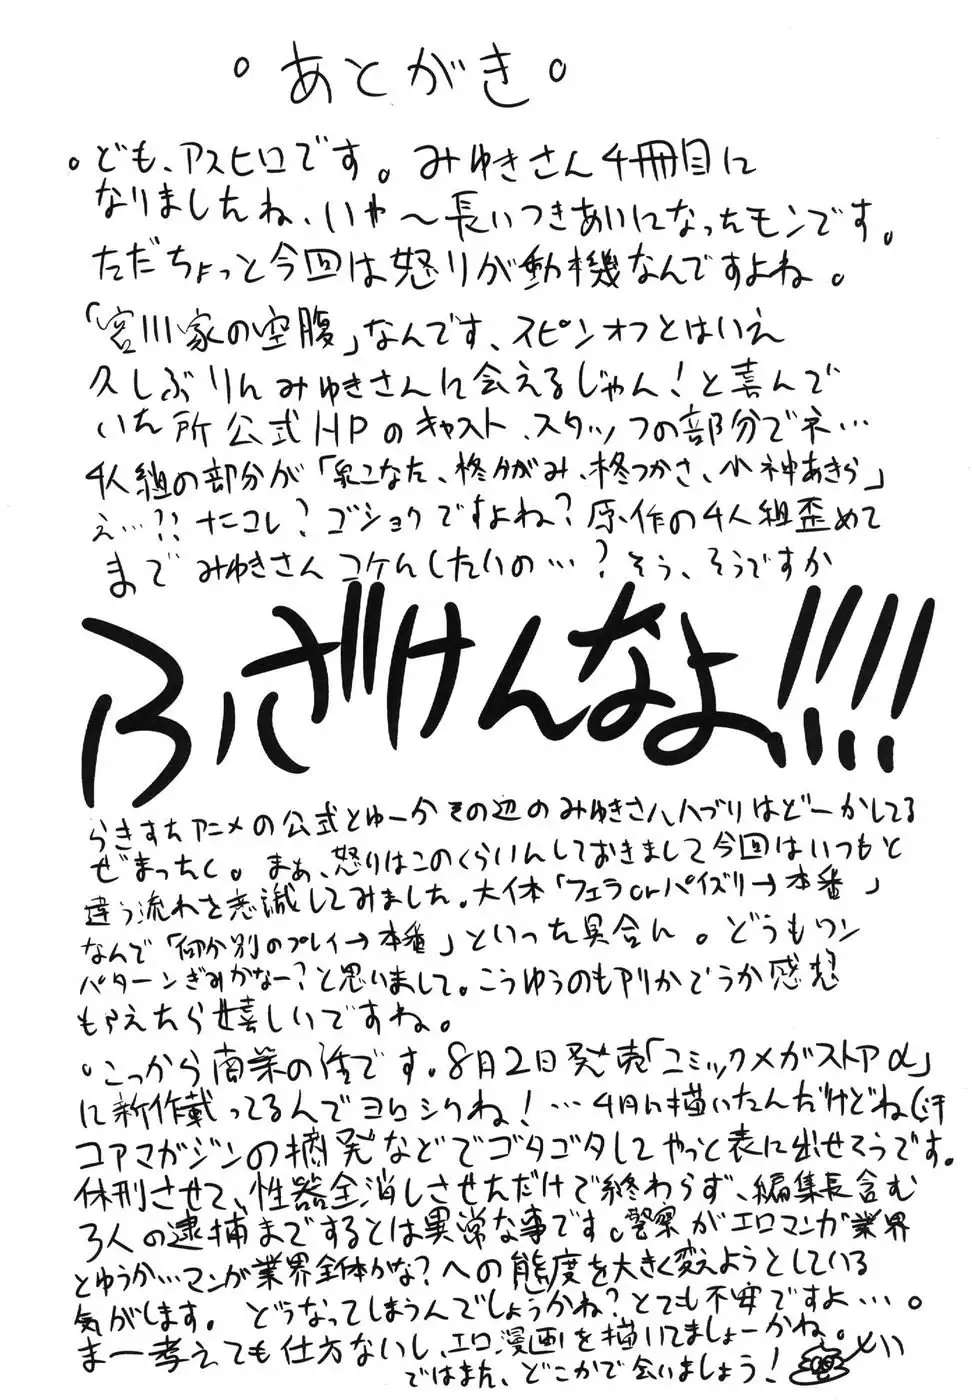 。あとがき。
。ども、アスヒロです。みゆきさん4冊目に
なりましたね、いや～長いつきあいになったモンです。
ただちょっと今回は怒りが動機なんですよね。
「宮川家の空腹」なんです、スピンオフとはいえ
久しぶりにみゆきさんに会えるじゃん！と喜んで
いた所公式HPのキャスト、スタッフの部分でネ…
4人組の部分が「泉こなた、柊かがみ、柊つかさ、小神あきら」
え…?? ナニコレ？ゴショクですよね？原作の4人組歪めて
まで みゆきさんコケにしたいの…？そう、そうですか
ふざけんなよ!!!!
らきすたアニメの公式とゆーかその辺のみゆきさんハブりはどーかしてる
ぜまったく。まぁ、怒りはこのくらいにしておきまして今回はいつもと
違う流れを意識してみました。大体「フェラorパイズリ→本番」
なんで「何か別のプレイ→本番」といった具合に。どうもワン
パターンぎみかなー？と思いまして。こうゆうのもアリかどうか感想
もらえたら嬉しいですね。
・こっから商業の話です。8月2日発売「コミックメガストアα」
に新作載ってるんでヨロシクね！…4月に描いたんだけどね（汗
コアマガジンの摘発などでゴタゴタしてやっと表に出せそうです。
休刊させて、性器全消しさせただけで終わらず、編集長含む
3人の逮捕までするとは異常な事です。警察がエロマンガ業界
とゆうか…マンガ業界全体かな？への態度を大きく変えようとしている
気がします。どうなってしまうんでしょうかね？とても不安ですよ…。
まー考えても仕方ないし、エロ漫画を描いてましょーかね。
ではまた、どこかで会いましょう！